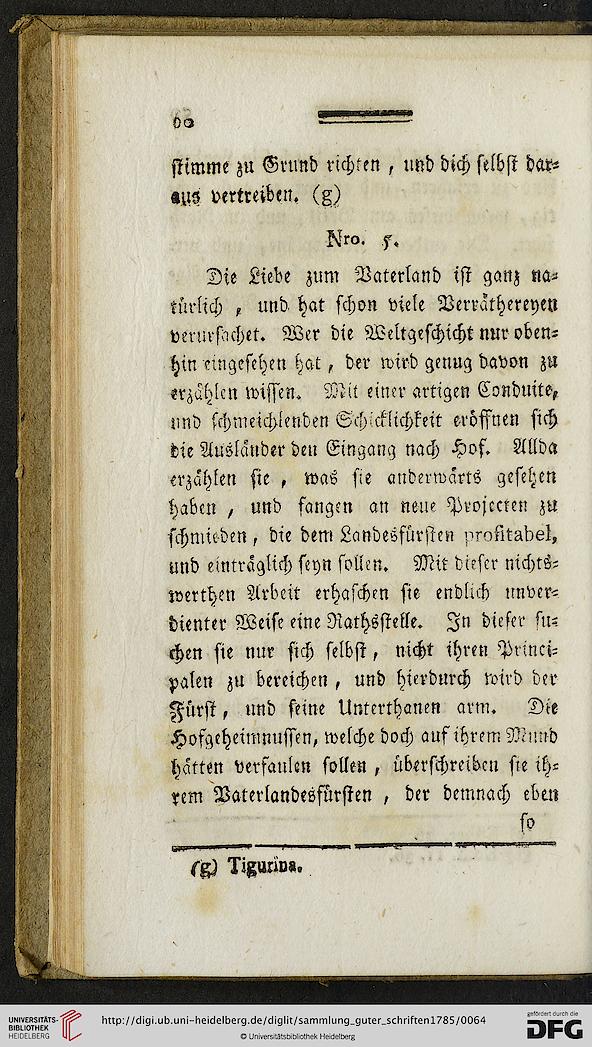 60
stimme zu Grund richten, und dich selbst dar-
aus vertreiben. (g)
Nro. 5.
Die Liebe zum Vaterland ist ganz na-
türlich, und hat schon viele Verräthereyen
verursachet. Wer die Weltgeschicht nur oben-
hin eingesehen hat, der wird genug davon zu
erzählen wissen. Mit einer artigen Conduite,
und schmeichlenden Schicklichkeit eröffnen sich
die Ausländer den Eingang nach Hof. Allda
erzählen sie, was sie anderwärts gesehen
haben, und fangen an neue Projecten zu
schmieden, die dem Landesfürsten profitabel,
und einträglich seyn sollen. Mit dieser nichts-
werthen Arbeit erhaschen sie endlich unver-
dienter Weise eine Rathsstelle. In dieser su-
chen sie nur sich selbst, nicht ihren Princi-
palen zu bereichen, und hierdurch wird der
Fürst, und seine Unterthanen arm. Die
Hofgeheimnussen, welche doch auf ihrem Mund
hätten verfaulen sollen, überschreiben sie ih-
rem Vaterlandesfürsten, der demnach eben
so
(g) Tigurina.
UNIVERSITÄTS-
BIBLIOTHEK
HEIDELBERG
http://digi.ub.uni-heidelberg.de/diglit/sammlung_guter_schriften1785/0064
© Universitätsbibliothek Heidelberg
gefördert durch die
DFG